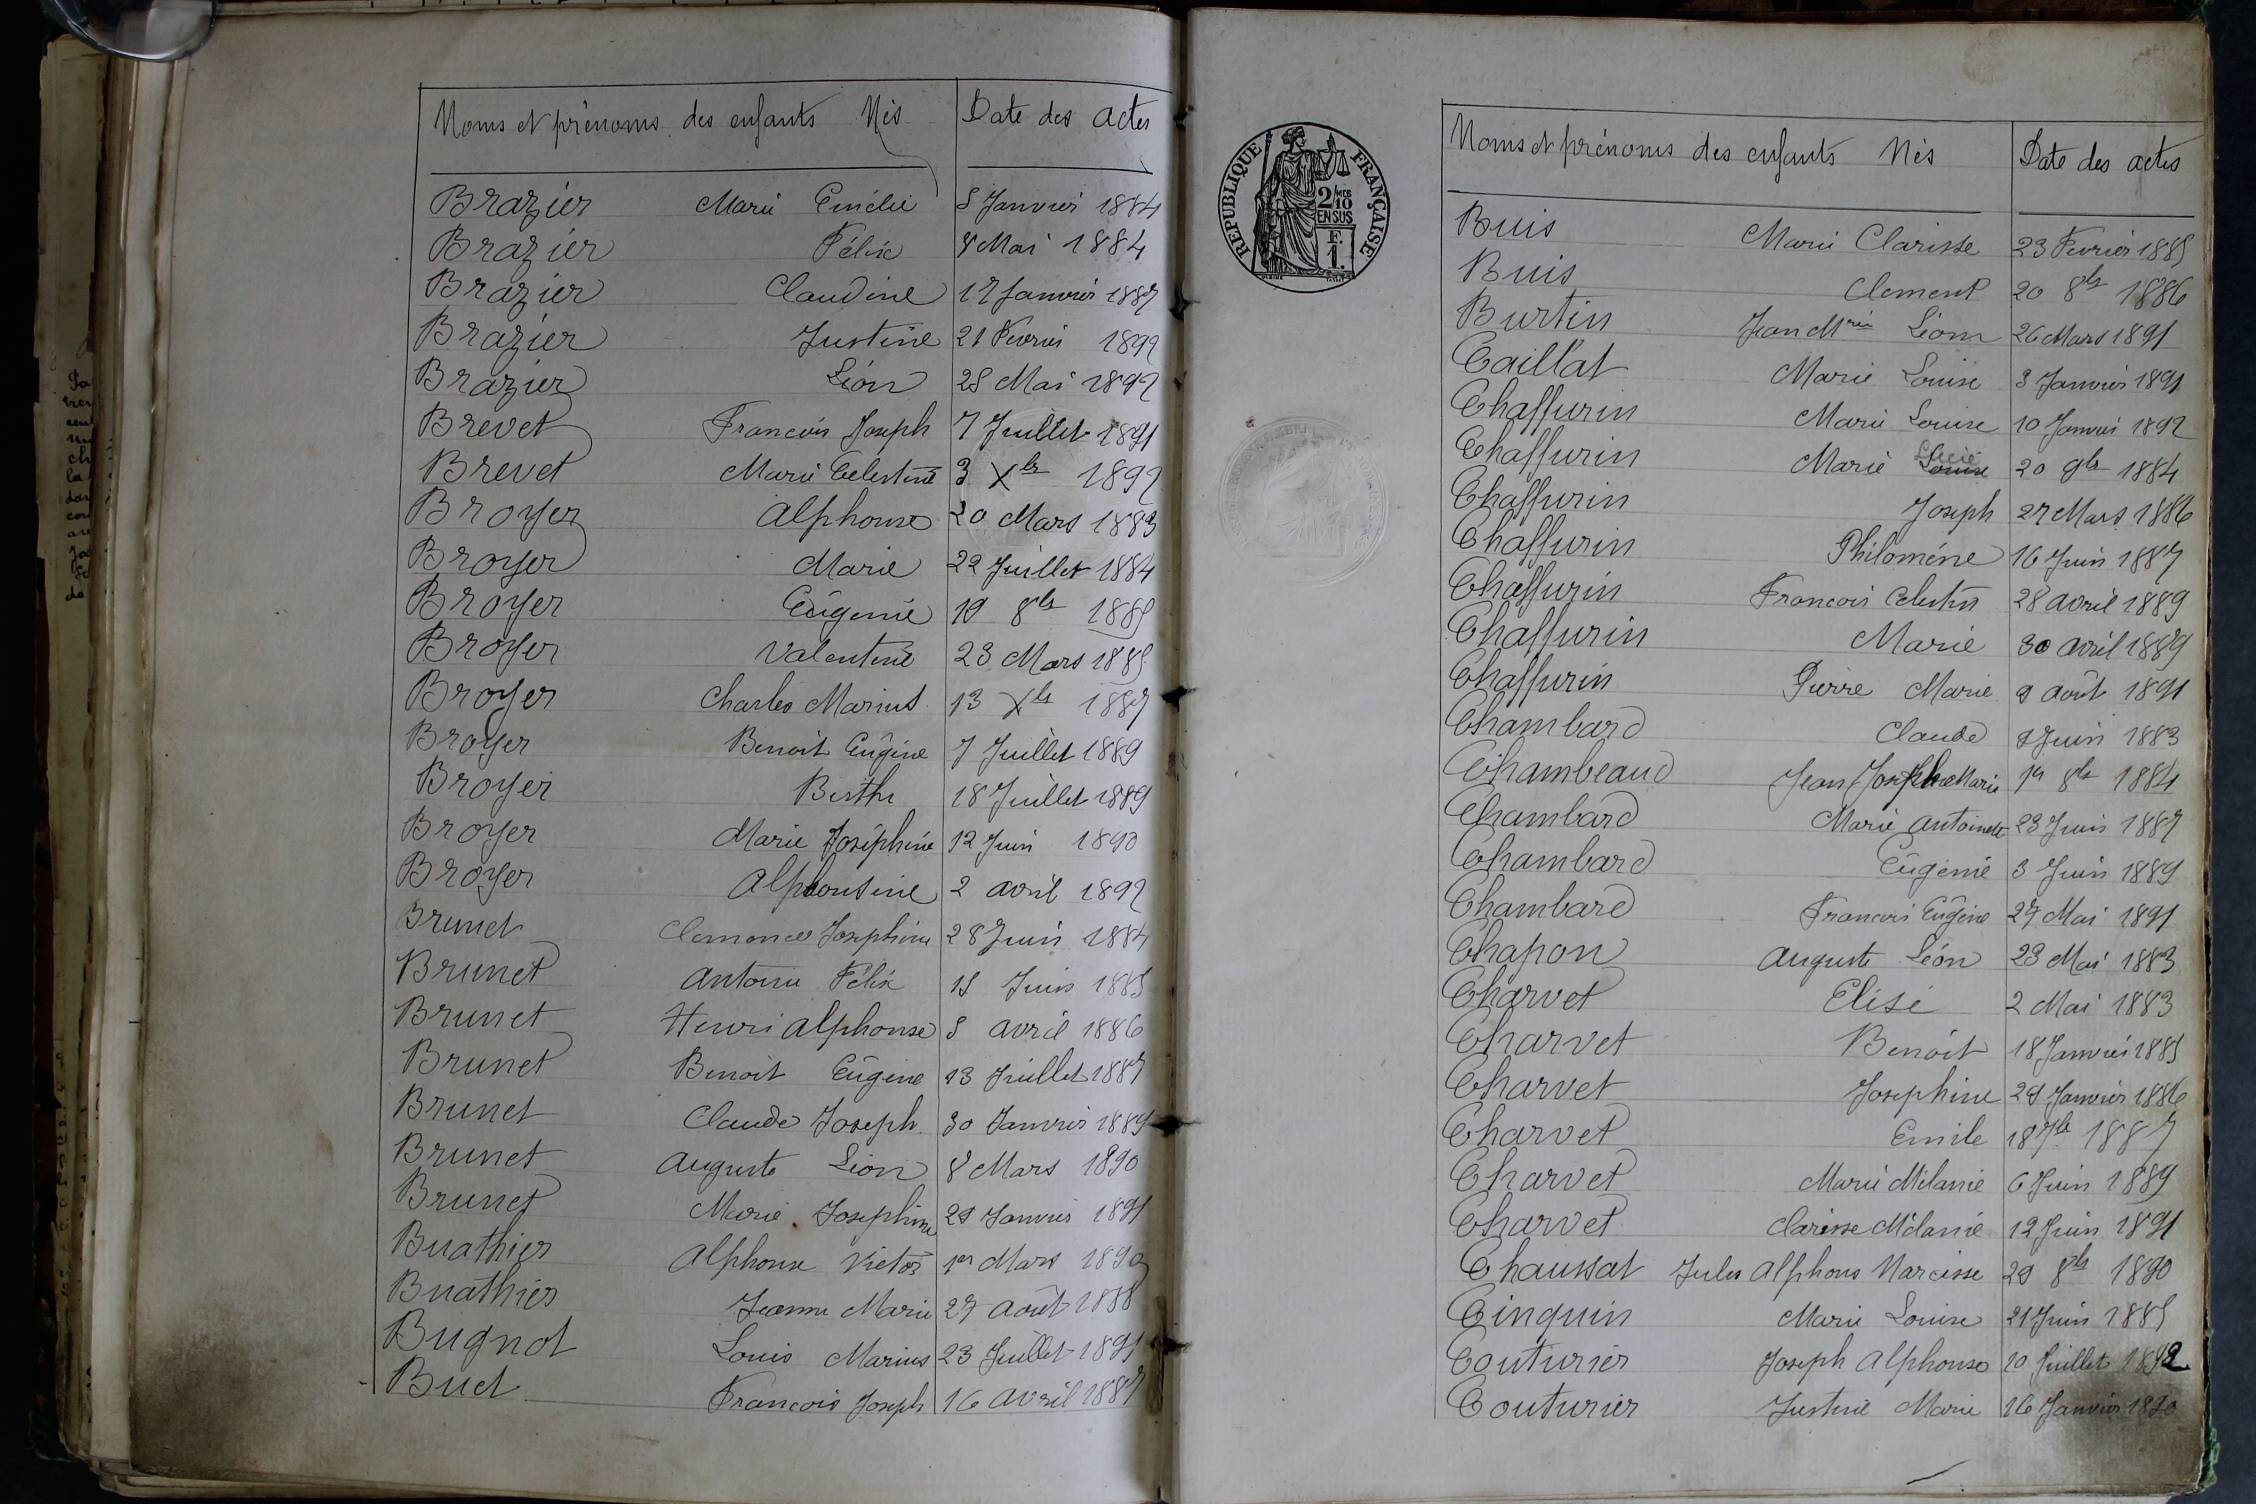 Noms et prénoms des enfants Nés Date des actes
Brazier Marie Emélie 5 Janvier 1884
Brazier Félix 8 Mai 1884
Brazier Claudine 17 Janvier 1887
Brazier Justine 21 Fevrier 1892
Brazier Léon 28 Mai 1892
Brevet Francois Joseph 7 Juillet 1891
Brevet Marie Celestine 3 Xbr 1892
Broyer Alphonse 20 Mars 1883
Broyer Marie 22 Juillet 1884
Broyer Eugenie 19 8br 1885
Broyer Valentine 23 Mars 1885
Broyer Charles Marius 13 Xbr 1887
Broyer Benoit Eugène 7 Juillet 1889
Broyer Berthe 18 Juillet 1889
Broyer Marie Joséphine 12 Juin 1890
Broyer Alphonsine 2 avril 1892
Brunet Clemence Josephine 28 Juin 1884
Brunet Antoine Félix 15 Juin 1885
Brunet Henri Alphonse 5 avril 1886
Brunet Benoit Eugène 13 Juillet 1887
Brunet Claude Joseph 30 Janvier 1889
Brunet Auguste Léon 8 Mars 1890
Brunet Marie Josephine 29 Janvier 1891
Buathier Alphonse Victor 1er Mars 1890
Buathier Jeanne Marie 27 Août 1888
Bugnot Louis Marius 23 Juillet 1891
Buet Francois Joseph 16 avril 1887
REPUBLIQUE FRANÇAISE
2/10 MES
EN SUS
F.
1.
Noms et prénoms des enfants Nés Date des actes
Buis Marie Clarisse 23 Fevrier 1885
Buis Clement 20 8br 1886
Burtin Jean Mrie Léon 26 Mars 1891
Caillat Marie Louise 3 Janvier 1891
Chaffurin Marie Louise 10 Janvier 1892
Chaffurin Marie Louise 20 9br 1884
Chaffurin Joseph 27 Mars 1886
Chaffurin Philomène 16 Juin 1887
Chaffurin Francois Celestin 28 avril 1889
Chaffurin Marie 30 avril 1889
Chaffurin Pierre Marie 9 août 1891
Chambard Claude Juin 1883
Chambeaud Jean Joseph Marie 1er 8br 1884
Chambard Marie Antoinette 23 Juin 1887
Chambard Eugènie 3 Juin 1889
Chambard Francois Eugène 27 Mai 1891
Chapon Auguste Léon 23 Mai 1883
Charvet Elisé 2 Mai 1883
Charvet Benoit 18 Janvier 1885
Charvet Josephine 29 Janvier 1886
Charvet Emile 18 7br 1887
Charvet Marie Mélanie 6 Juin 1889
Charvet Clarisse Mélanie 12 Juin 1891
Chaussat Jules Alphons Narcisse 29 8br 1890
Cinquin Marie Louise 21 Juin 1885
Couturier Joseph Alphonse 10 Juillet 1892
Couturier Justine Marie 16 Janvier 1890